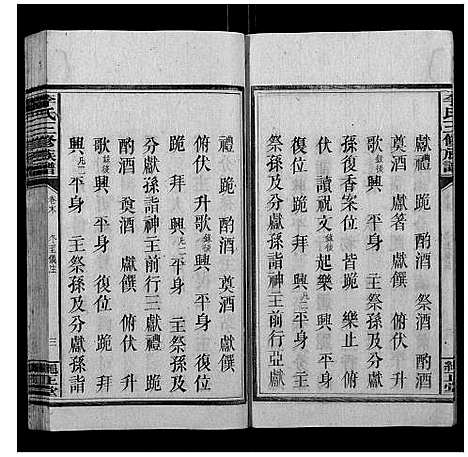 李氏三修族譜
獻禮 跪 酌酒 奠酒
酌酒 獻箸 獻饌 俯伏 升
歌 鼓後 興 平身 復位 主祭
孫復香案位 皆跪 樂止 俯
伏 讀祝文 鼓後 起樂 興 平身
復位 跪 拜 興 凡二 平身 主
祭孫及分獻孫詣神主前行亞獻
禮 跪 酌酒 奠酒 獻饌
俯伏 升歌 鼓後 興 平身 復位
跪 拜 興 凡二 平身 主祭孫及
分獻孫詣神主前行三獻禮 跪
酌酒 奠酒 獻饌 俯伏 升
歌 鼓後 興 平身 復位 跪 拜
興 凡二 平身 主祭孫及分獻孫詣
李氏三修族譜
卷末 冬至儀注
三